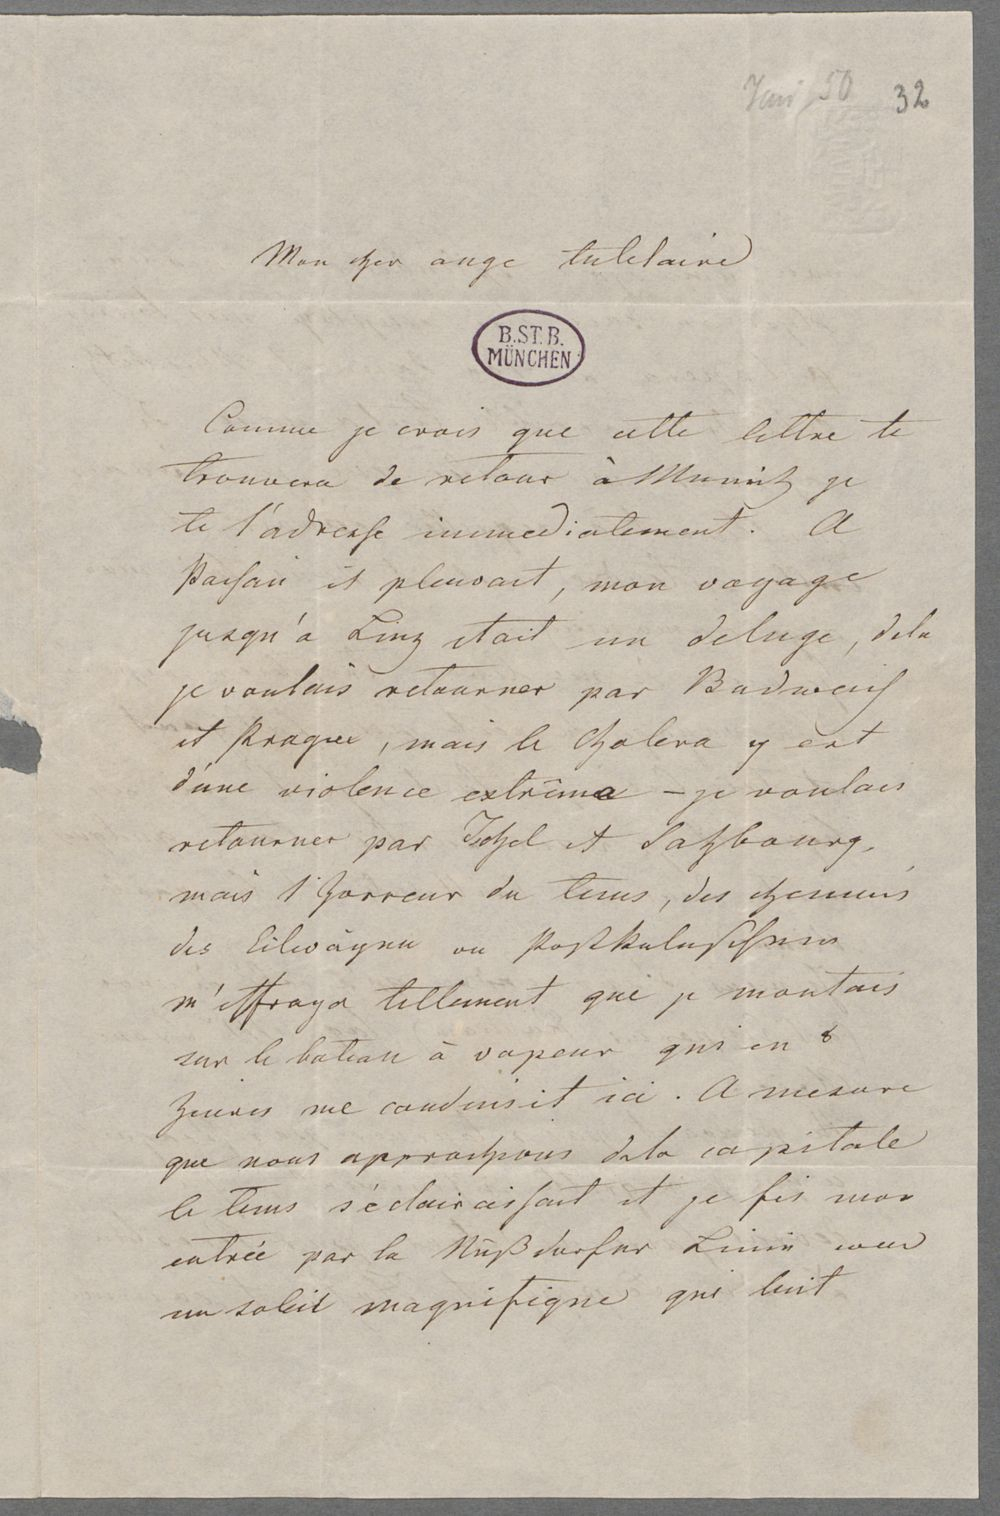 Juni 50 32
Mon cher ange tutelaire
B.ST.B.
MÜNCHEN
Comme je crois que cette lettre te
trouvera de retour à Munich je
te l'adresse immediatement. A
Passau il pleuvait, mon voyage
jusqu'a Linz etait un deluge, dela
je voulais retourner par Budweis
et Prague, mais le cholera y est
d'une violence extrême – je voulais
retourner par Ischel et Salzbourg,
mais l'horreur du tems, des chemins
des Eilwägen ou Postkaleschen
m'effraya tellement que je montais
sur le bateau à vapeur qui en 8
heures me conduisit ici. A mesure
que nous approchions dela capitale
le tems s'éclaircissait et je fis mon
entrée par la Nußdorfer Linie avec
un soleil magnifique qui luit